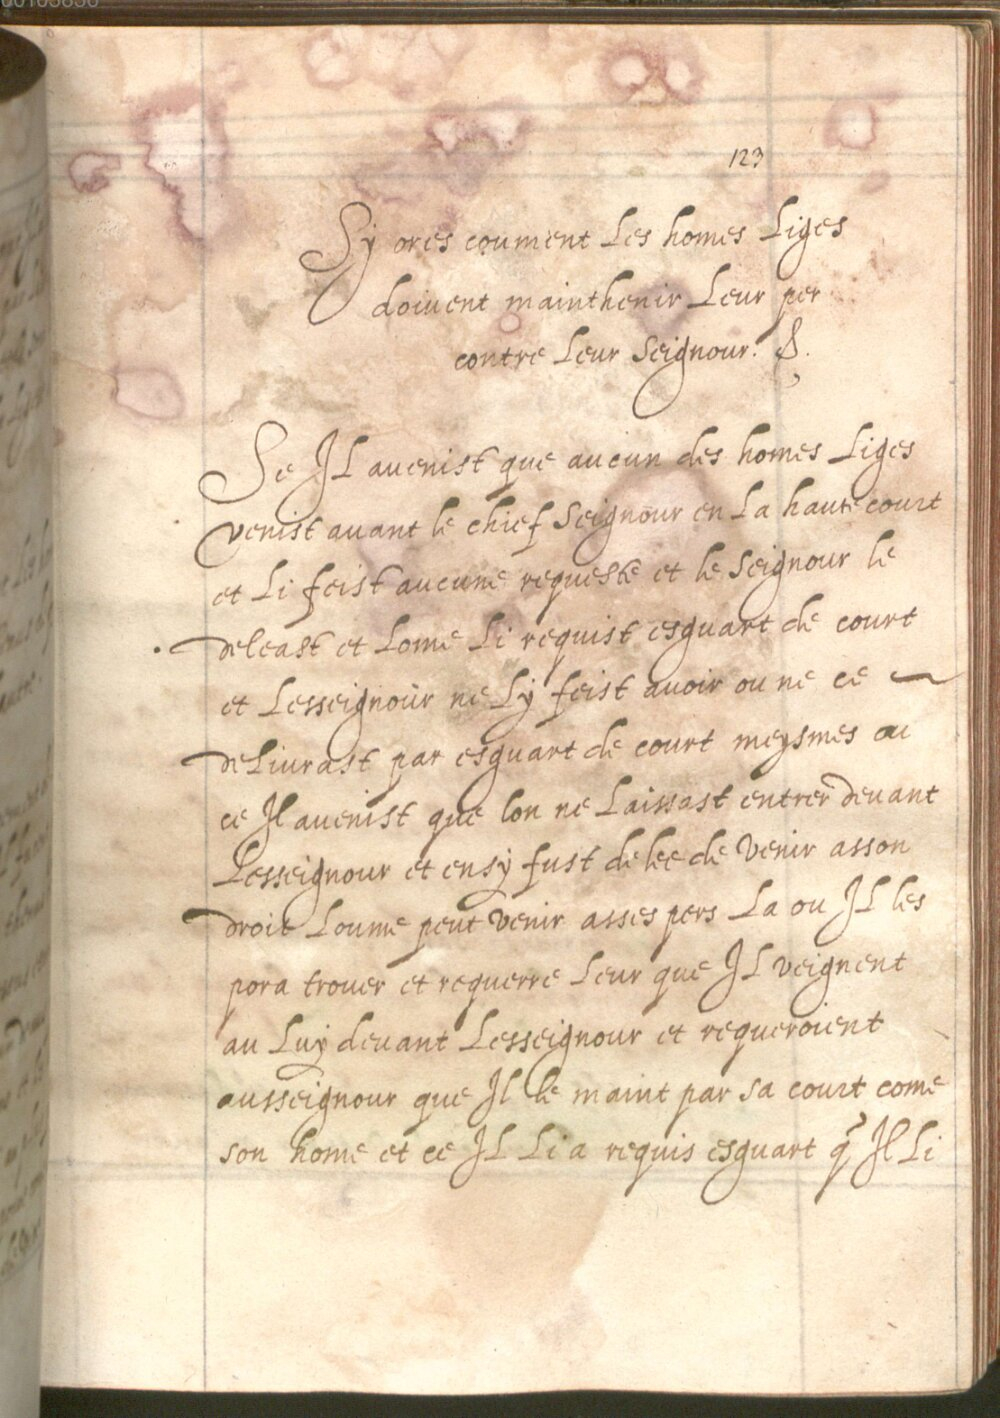 123
Sy ores coument Les homes Liges
doivent mainthenir Leur per
contre Leur Seignour. &.
Se IL avenist que aucun des homes Liges
venist avant le chief Seignour en La haute court
et Li feist aucune requeste et le Seignour le
deleast et Lome Li requist esguart de court
et Lesseignour ne Ly feist avoir ou ne ce
delivrast par esguart de court meysmes ou
ce Il avenist que lon ne Laissast entrer devant
Lesseignour et ensy fust delee de venir asson
droit Loume peut venir asses pers La ou IL les
pora trover et requerre Leur que IL veignent
au Luy devant Lesseignour et requeroient
ausseignour que Il le maint par sa court come
son home et ce IL Li a requis esguart q Il Li